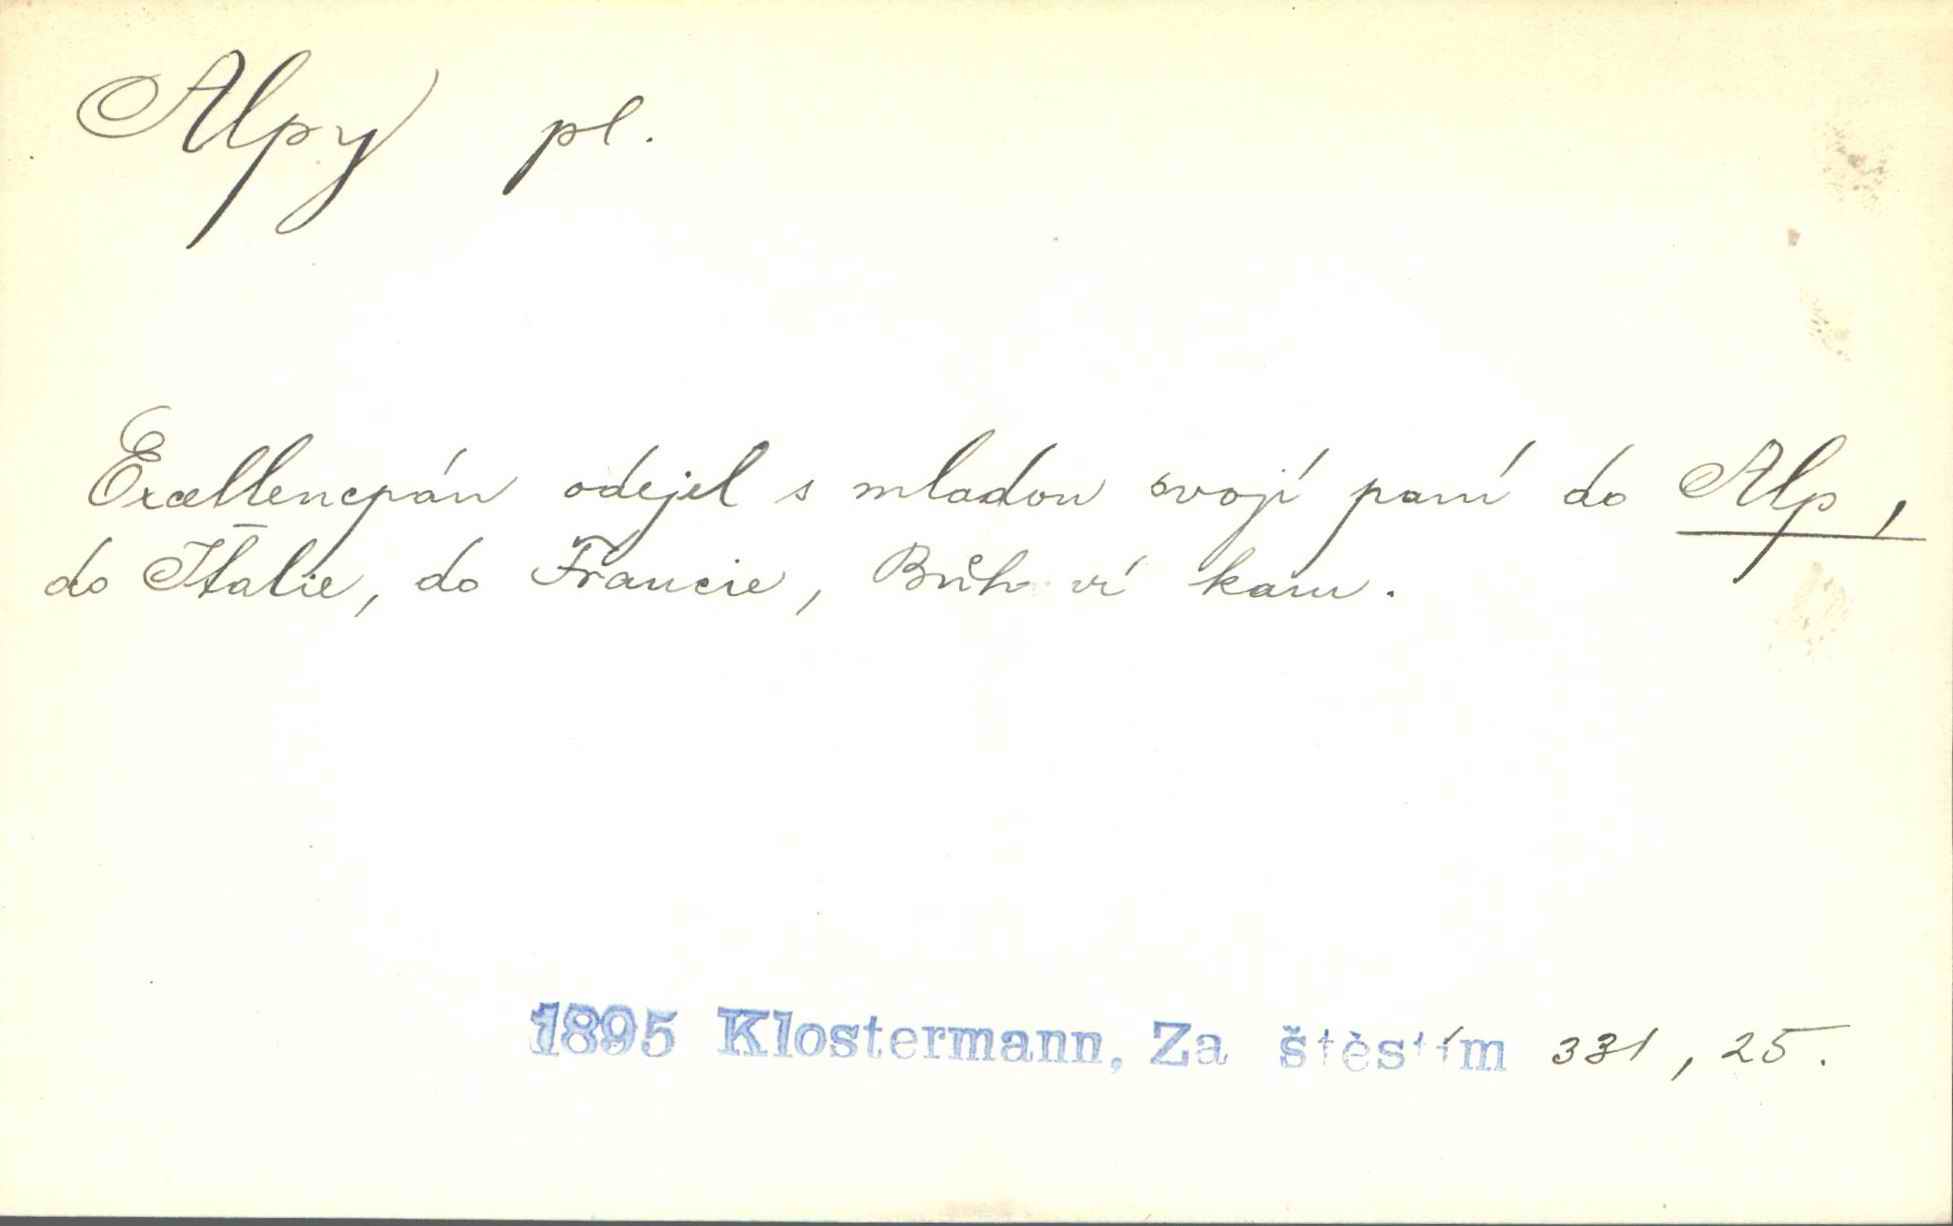 Alpy pl.
Excellencpán odejel s mladou svojí paní do Alp,
do Italie, do Francie, Bůh ví kam.
1895 Klostermann, Za štěstím 331, 25.